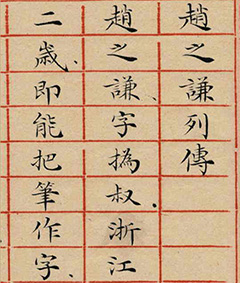 趙之謙列傳
趙之謙、字撝叔.浙江
二歲.即能把筆作字.